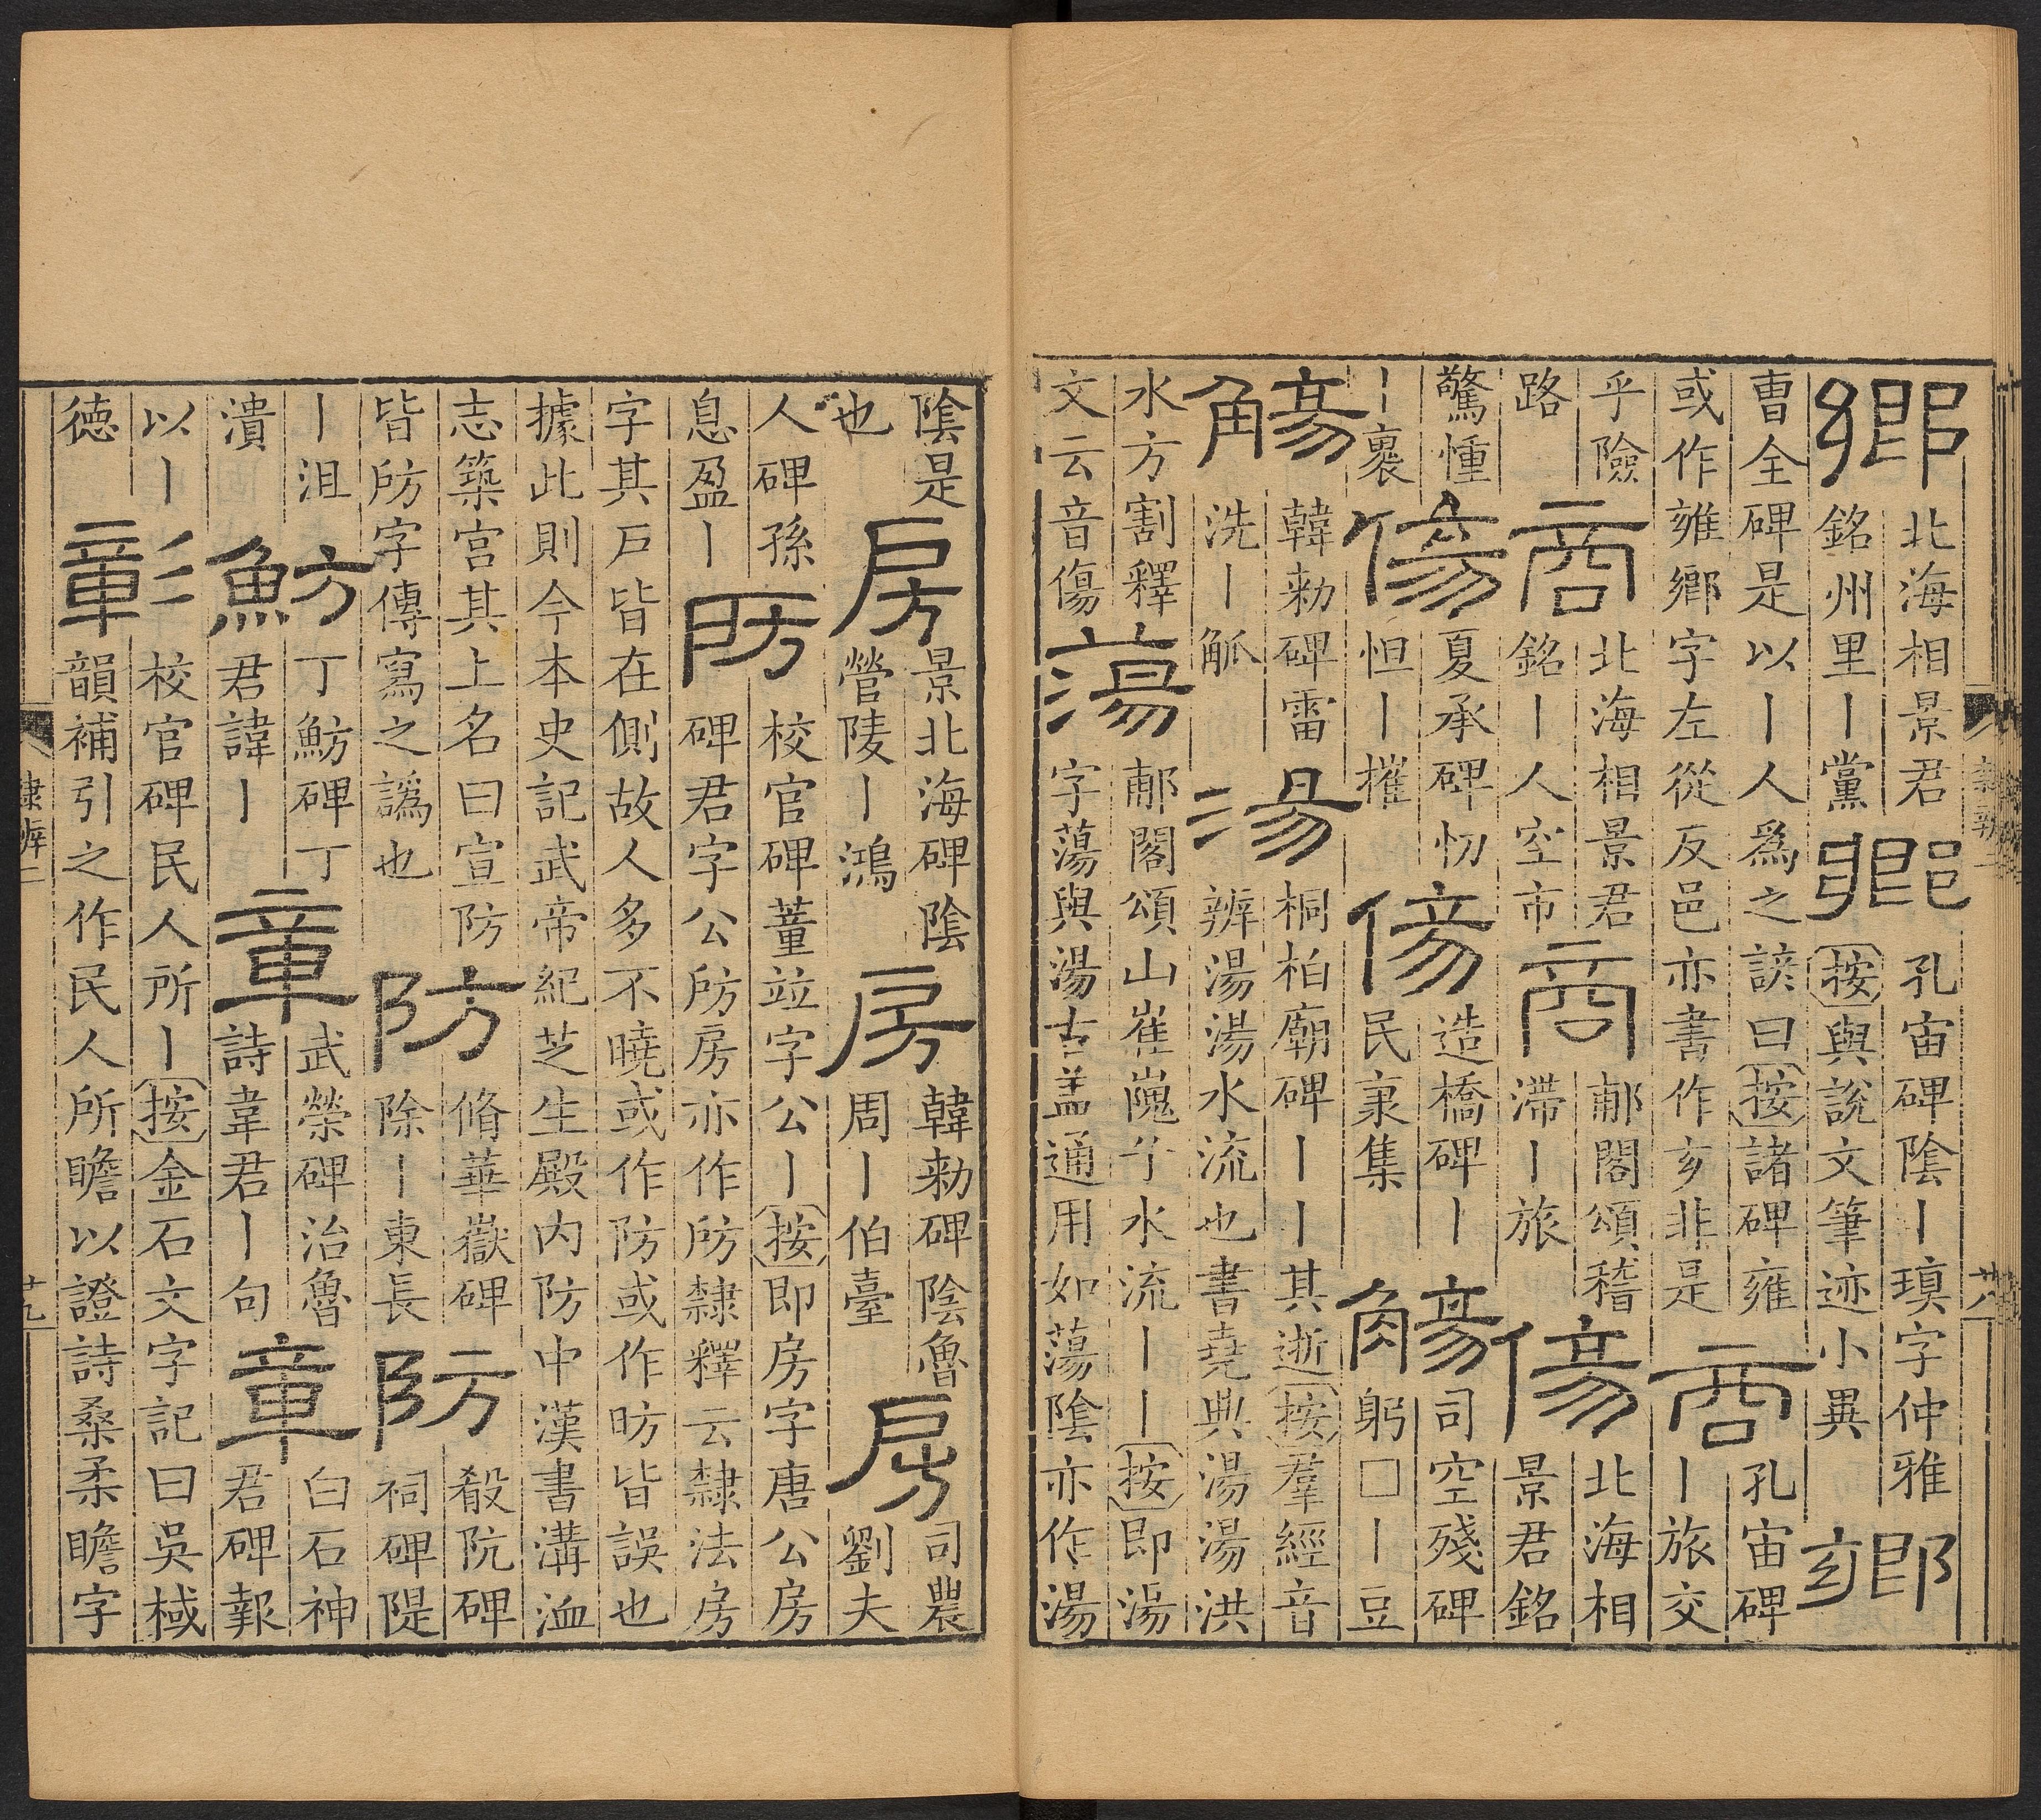 鄉
北海相景君
銘州里〡黨
鄉
孔宙碑陰〡瑱字仲雅
按與說文筆迹小異
鄉
曹全碑是以〡人爲之諺曰按諸碑雍
或作雍鄉字左從反邑亦書作亥非是
商
孔宙碑
〡旅交
乎險
路
商
北海相景君
銘〡人空市
商
郙閣頌稽
滯〡旅
傷
北海相
景君銘
驚慟
〡裹
傷
夏承碑忉
怛〡摧
傷
造橋碑〡
民衷集
觴
司空殘碑
躬□〡豆
觴
韓勑碑雷
洗〡觚
湯
桐柏廟碑〡〡其逝按羣經音
辨湯湯水流也書堯典湯湯洪
水方割釋
文云音傷
蕩
郙閣頌山崔嵬兮水流〡〡按即湯
字蕩與湯古盖通用如蕩陰亦作湯
隸辨二
廿八
陰是
也
房
景北海碑陰
營陵〡鴻
房
韓勑碑陰魯
周〡伯臺
房
司農
劉夫
人碑孫
息盈〡
房
校官碑董竝字公〡按即房字唐公房
碑君字公㕫房亦作㕫隸釋云隸法房
字其戶皆在側故人多不曉或作防或作昉皆誤也
據此則今本史記武帝紀芝生殿内防中漢書溝洫
志築宮其上名曰宣防
皆㕫字傳寫之譌也
防
脩華嶽碑
除〡東長
防
殽阬碑
祠碑隄
〡沮
潰
魴
丁魴碑丁
君諱〡
章
武榮碑治魯
詩韋君〡句
章
白石神
君碑報
以〡
德
彰
校官碑民人所〡按金石文字記曰吳棫
韻補引之作民人所瞻以證詩桑柔瞻字
隸辨二
廿九